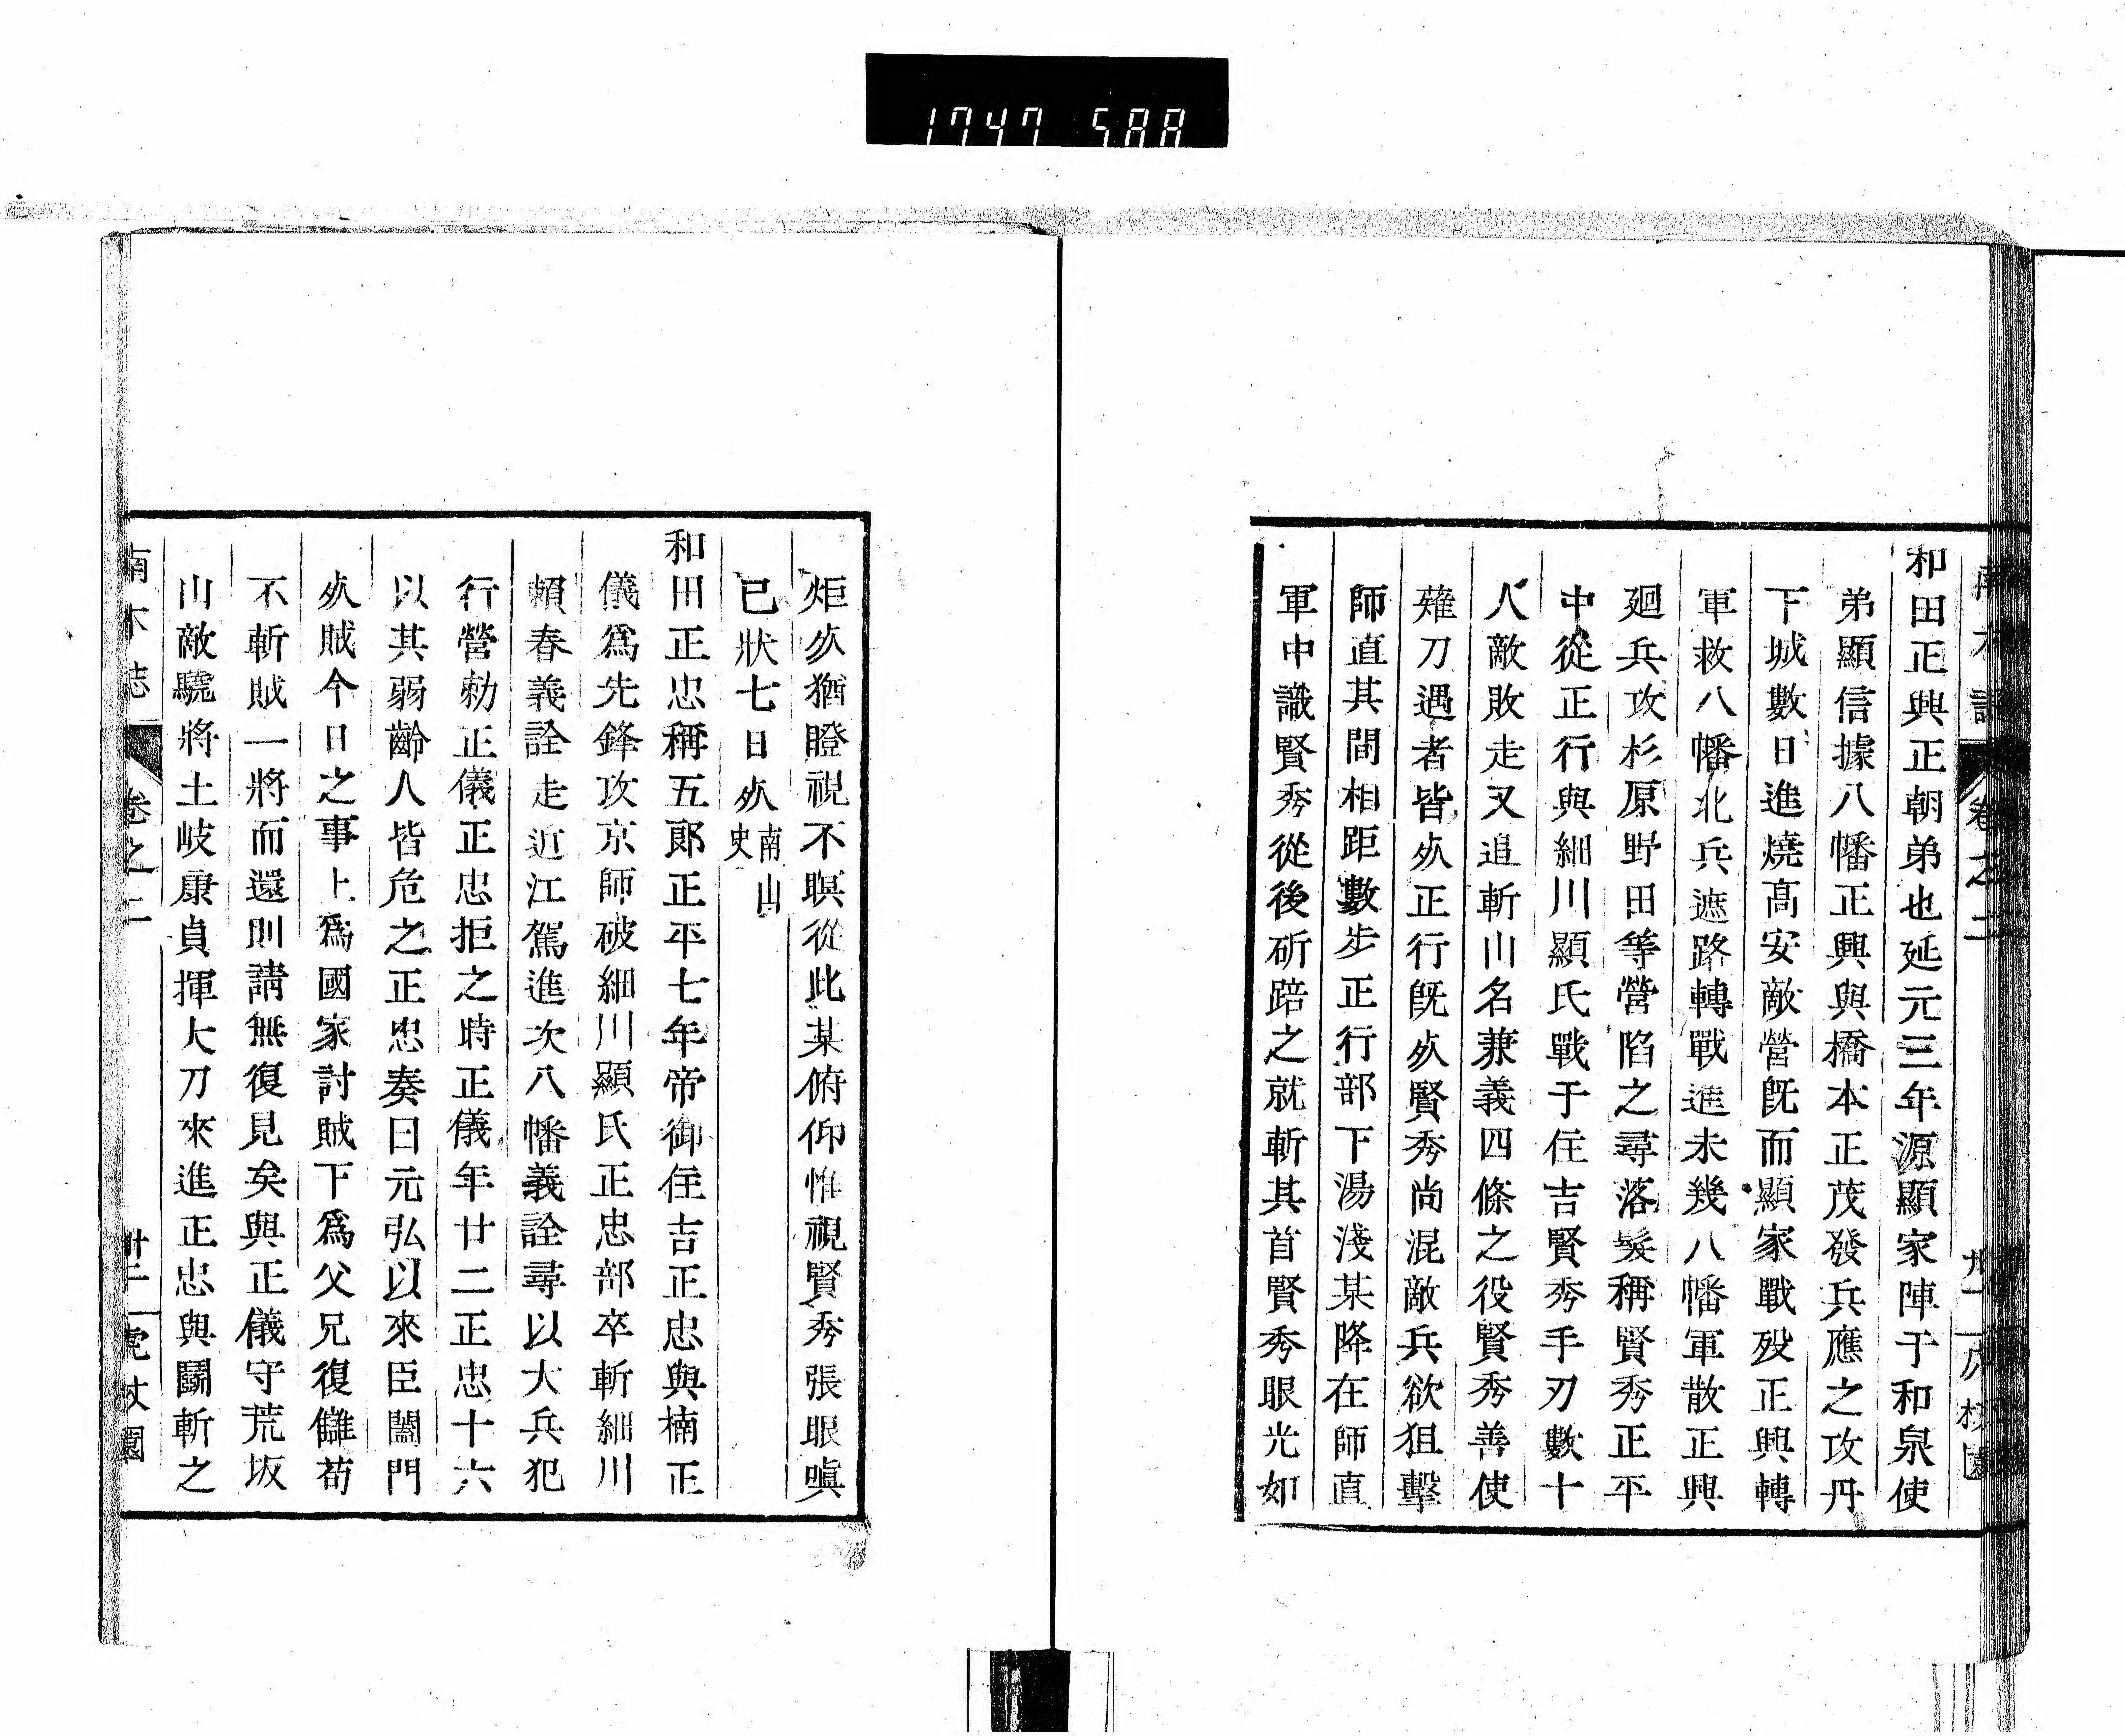 1747 588
和田正興正朝弟也延元三年源顯家陣于和泉使
弟顯信據八幡正興與橋本正茂發兵應之攻丹
下城數日進燒高安敵營既而顯家戰歿正興轉
軍救八幡北兵遮路轉戰進未幾八幡軍散正興
廻兵攻杉原野田等營陷之尋落髮稱賢秀正平
中從正行與細川顯氏戰于住吉賢秀手刃數十
人敵敗走又追斬山名兼義四條之役賢秀善使
薙刀遇者皆死正行既死賢秀尚混敵兵欲狙擊
師直其間相距數步正行部下湯淺某降在師直
軍中識賢秀從後斫踣之就斬其首賢秀眼光如
炬死猶瞪視不瞑從此某俯仰惟視賢秀張眼嗔
已狀七日死南山史
和田正忠稱五郞正平七年帝御住吉正忠與楠正
儀爲先鋒攻京師破細川顯氏正忠部卒斬細川
賴春義詮走近江駕進次八幡義詮尋以大兵犯
行營勅正儀正忠拒之時正儀年廿二正忠十六
以其弱齡人皆危之正忠奏曰元弘以來臣闔門
死賊今日之事上爲國家討賊下爲父兄復讎苟
不斬賊一將而還則請無復見矣與正儀守荒坂
山敵驍將土岐康貞揮大刀來進正忠與鬪斬之
卷之二